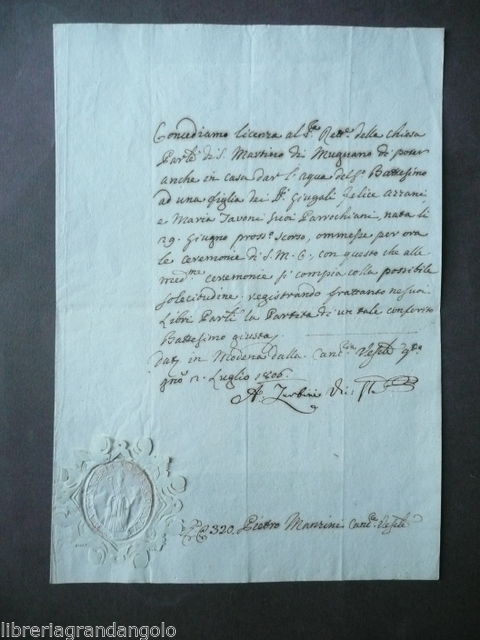 Concediamo licenza al Sre Rettre della chiesa
Parle di S. Martino di Mugnano di poter
anche in casa dar l'aqua del So Battesimo
ad una figlia dei Sri Giugali Felice Azzani
e Maria Tavoni suoi Parrochiani, nata li
29. Giugno prosso scorso, ommesse per ora
le ceremonie di S. M. C., con questo che alle
medme ceremonie si compia colla possibile
solecitudine, registrando frattanto ne suoi
Libri Parli la Partita di un tale conferito
Battesimo giusta
Dat. in Modena dalla Cancria Vesle
gno 2. Luglio 1806.
A. Zerbini
Ro 320. Pietro Manzini Cance Vesle
libreriagrandangolo